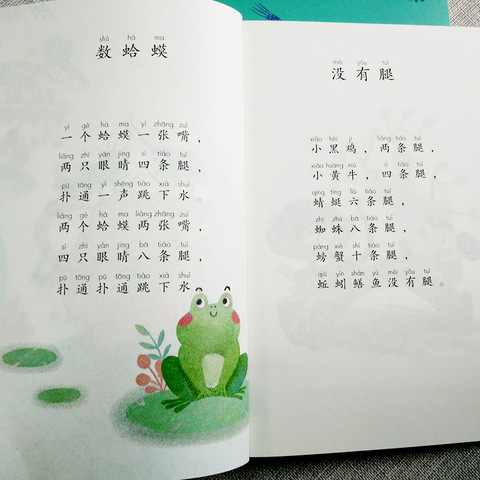 shǔ há ma
数蛤蟆
yí gè há ma yì zhāng zuǐ
一个蛤蟆一张嘴，
liǎng zhī yǎn jing sì tiáo tuǐ
两只眼睛四条腿，
pū tōng yì shēng tiào xià shuǐ
扑通一声跳下水
liǎng gè há ma liǎng zhāng zuǐ
两个蛤蟆两张嘴，
sì zhī yǎn jing bā tiáo tuǐ
四只眼睛八条腿，
pū tōng pū tōng tiào xià shuǐ
扑通扑通跳下水
méi yǒu tuǐ
没有腿
xiǎo hēi jī liǎng tiáo tuǐ
小黑鸡，两条腿，
xiǎo huáng niú sì tiáo tuǐ
小黄牛，四条腿，
qīng tíng liù tiáo tuǐ
蜻蜓六条腿，
zhī zhū bā tiáo tuǐ
蜘蛛八条腿，
páng xiè shí tiáo tuǐ
螃蟹十条腿，
qiū yǐn shàn yú méi yǒu tuǐ
蚯蚓鳝鱼没有腿。